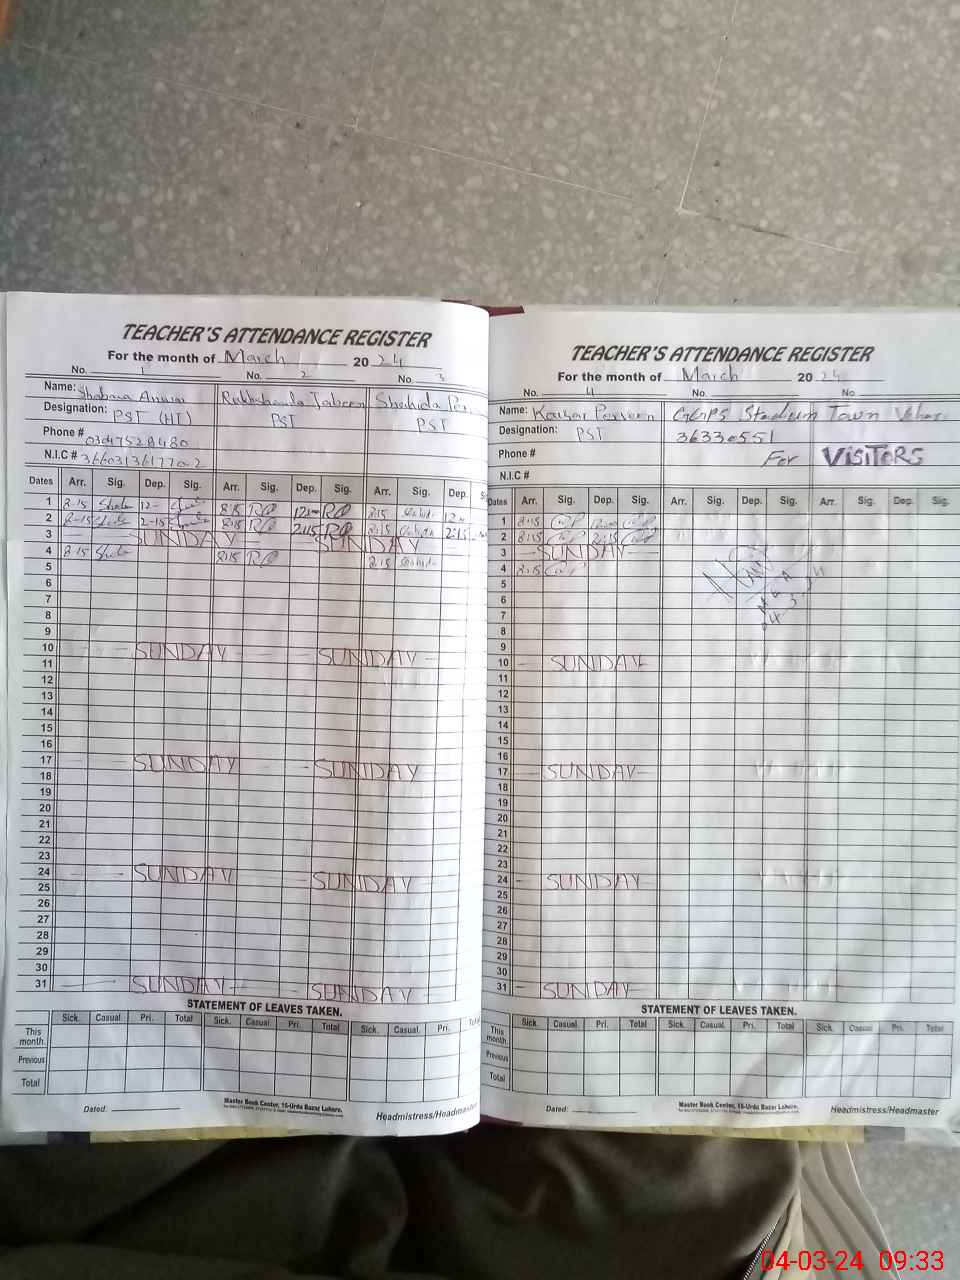 TEACHER'S ATTENDANCE REGISTER
For the month of March 2024
No. 1 No. 2 No. 3
Name: Shabana Anwar Rukhshanda Jabeen Shahida Per
Designation: PST (HT) PST PST
Phone #
N.I.C #
Dates Arr. Sig. Dep. Sig. Arr. Sig. Dep. Sig. Arr. Sig. Dep.
1 8:15 12- 8:15 RP 12 RP 8:15 12
2 8-15 2-15 8:15 RP 2:15 RP 8:15 2:15
3 SUNDAY SUNDAY
4 8:15 8:15 RP 8:15
5
6
7
8
9
10 SUNDAY SUNDAY
11
12
13
14
15
16
17 SUNDAY SUNDAY
18
19
20
21
22
23
24 SUNDAY SUNDAY
25
26
27
28
29
30
31 SUNDAY SUNDAY
STATEMENT OF LEAVES TAKEN.
Sick. Casual. Pri. Total Sick. Casual Pri. Total Sick. Casual. Pri.
This month.
Previous
Total
Dated:
Master Book Center, 15-Urdu Bazar Lahore.
Headmistress/Headmaster
TEACHER'S ATTENDANCE REGISTER
For the month of March 2024
No. 4 No. No
Name: Kausar Parveen GGPS Stadium Town Vehari
Designation: PST 36330551
Phone # For VISITORS
N.I.C #
Dates Arr. Sig. Dep. Sig. Arr. Sig. Dep. Sig. Arr. Sig. Dep. Sig.
1 8:15 12
2 8:15 2:15
3 SUNDAY
4 8:15
5
6 MEA
7 4-3-24
8
9
10 SUNDAY
11
12
13
14
15
16
17 SUNDAY
18
19
20
21
22
23
24 SUNDAY
25
26
27
28
29
30
31 SUNDAY
STATEMENT OF LEAVES TAKEN.
Sick. Casual Pri. Total Sick. Casual. Pri. Total Sick. Casual Pri. Total
This month.
Previous
Total
Dated:
Master Book Center, 15-Urdu Bazar Lahore.
Headmistress/Headmaster
04-03-24 09:33